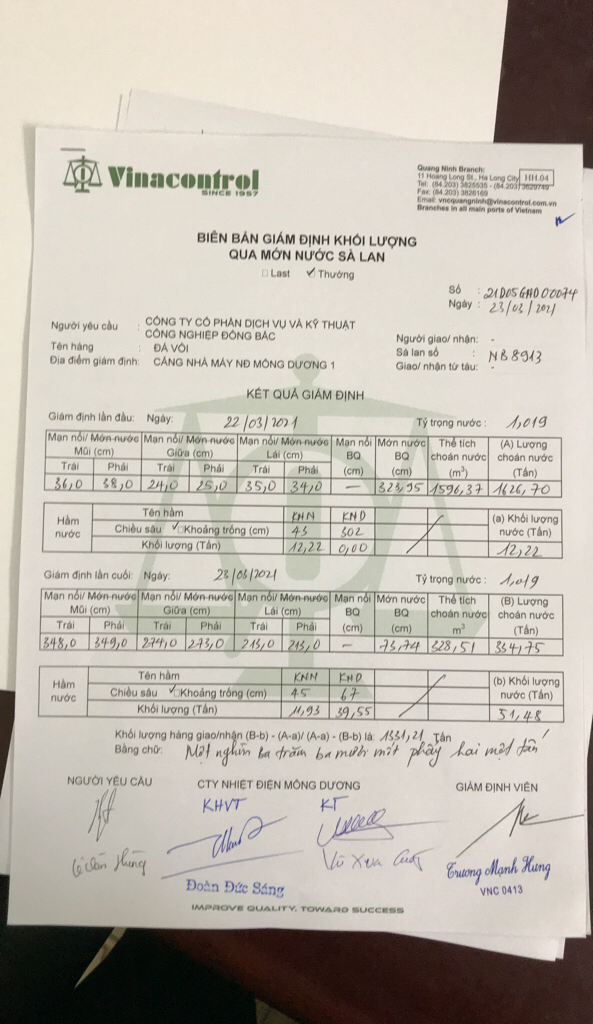 Vinacontrol
SINCE 1957
Quang Ninh Branch:
11 Hoang Long St., Ha Long City
HH.04
Tel: (84.203) 3825535 - (84.203) 3829749
Fax: (84.203) 3826169
Email: vncquangninh@vinacontrol.com.vn
Branches in all main ports of Vietnam
BIÊN BẢN GIÁM ĐỊNH KHỐI LƯỢNG
QUA MỚN NƯỚC SÀ LAN
Last Thường
Số : 21D05GHD00074
Ngày : 23/03/2021
Người yêu cầu : CÔNG TY CỔ PHẦN DỊCH VỤ VÀ KỸ THUẬT
CÔNG NGHIỆP ĐÔNG BẮC
Tên hàng : ĐÁ VÔI
Địa điểm giám định: CẢNG NHÀ MÁY NĐ MÔNG DƯƠNG 1
Người giao/ nhận: -
Sà lan số : NB8913
Giao/ nhận từ tàu: -
KẾT QUẢ GIÁM ĐỊNH
Giám định lần đầu: Ngày: 22/03/2021 Tỷ trọng nước : 1,019
Mạn nổi/ Mớn nước Mũi (cm) Mạn nổi/ Mớn nước Giữa (cm) Mạn nổi/ Mớn nước Lái (cm) Mạn nổi BQ (cm) Mớn nước BQ (cm) Thể tích choán nước (m³) (A) Lượng choán nước (Tấn)
Trái Phải Trái Phải Trái Phải
36,0 38,0 24,0 25,0 35,0 34,0 — 323,95 1596,37 1626,70
Hầm nước
Tên hầm KNM KND (a) Khối lượng nước (Tấn)
Chiều sâu Khoảng trống (cm) 43 302
Khối lượng (Tấn) 12,22 0,00 12,22
Giám định lần cuối: Ngày: 23/03/2021 Tỷ trọng nước : 1,019
Mạn nổi/ Mớn nước Mũi (cm) Mạn nổi/ Mớn nước Giữa (cm) Mạn nổi/ Mớn nước Lái (cm) Mạn nổi BQ (cm) Mớn nước BQ (cm) Thể tích choán nước m³ (B) Lượng choán nước (Tấn)
Trái Phải Trái Phải Trái Phải
348,0 349,0 274,0 273,0 213,0 213,0 — 73,74 328,51 334,75
Hầm nước
Tên hầm KNM KND (b) Khối lượng nước (Tấn)
Chiều sâu Khoảng trống (cm) 45 67
Khối lượng (Tấn) 11,93 39,55 51,48
Khối lượng hàng giao/nhận (B-b) - (A-a)/ (A-a) - (B-b) là: 1331,21 Tấn
Bằng chữ: Một nghìn ba trăm ba mươi mốt phẩy hai một tấn
NGƯỜI YÊU CẦU CTY NHIỆT ĐIỆN MÔNG DƯƠNG GIÁM ĐỊNH VIÊN
KHVT KT
Đoàn Đức Sáng
Trương Mạnh Hùng
VNC 0413
IMPROVE QUALITY, TOWARD SUCCESS